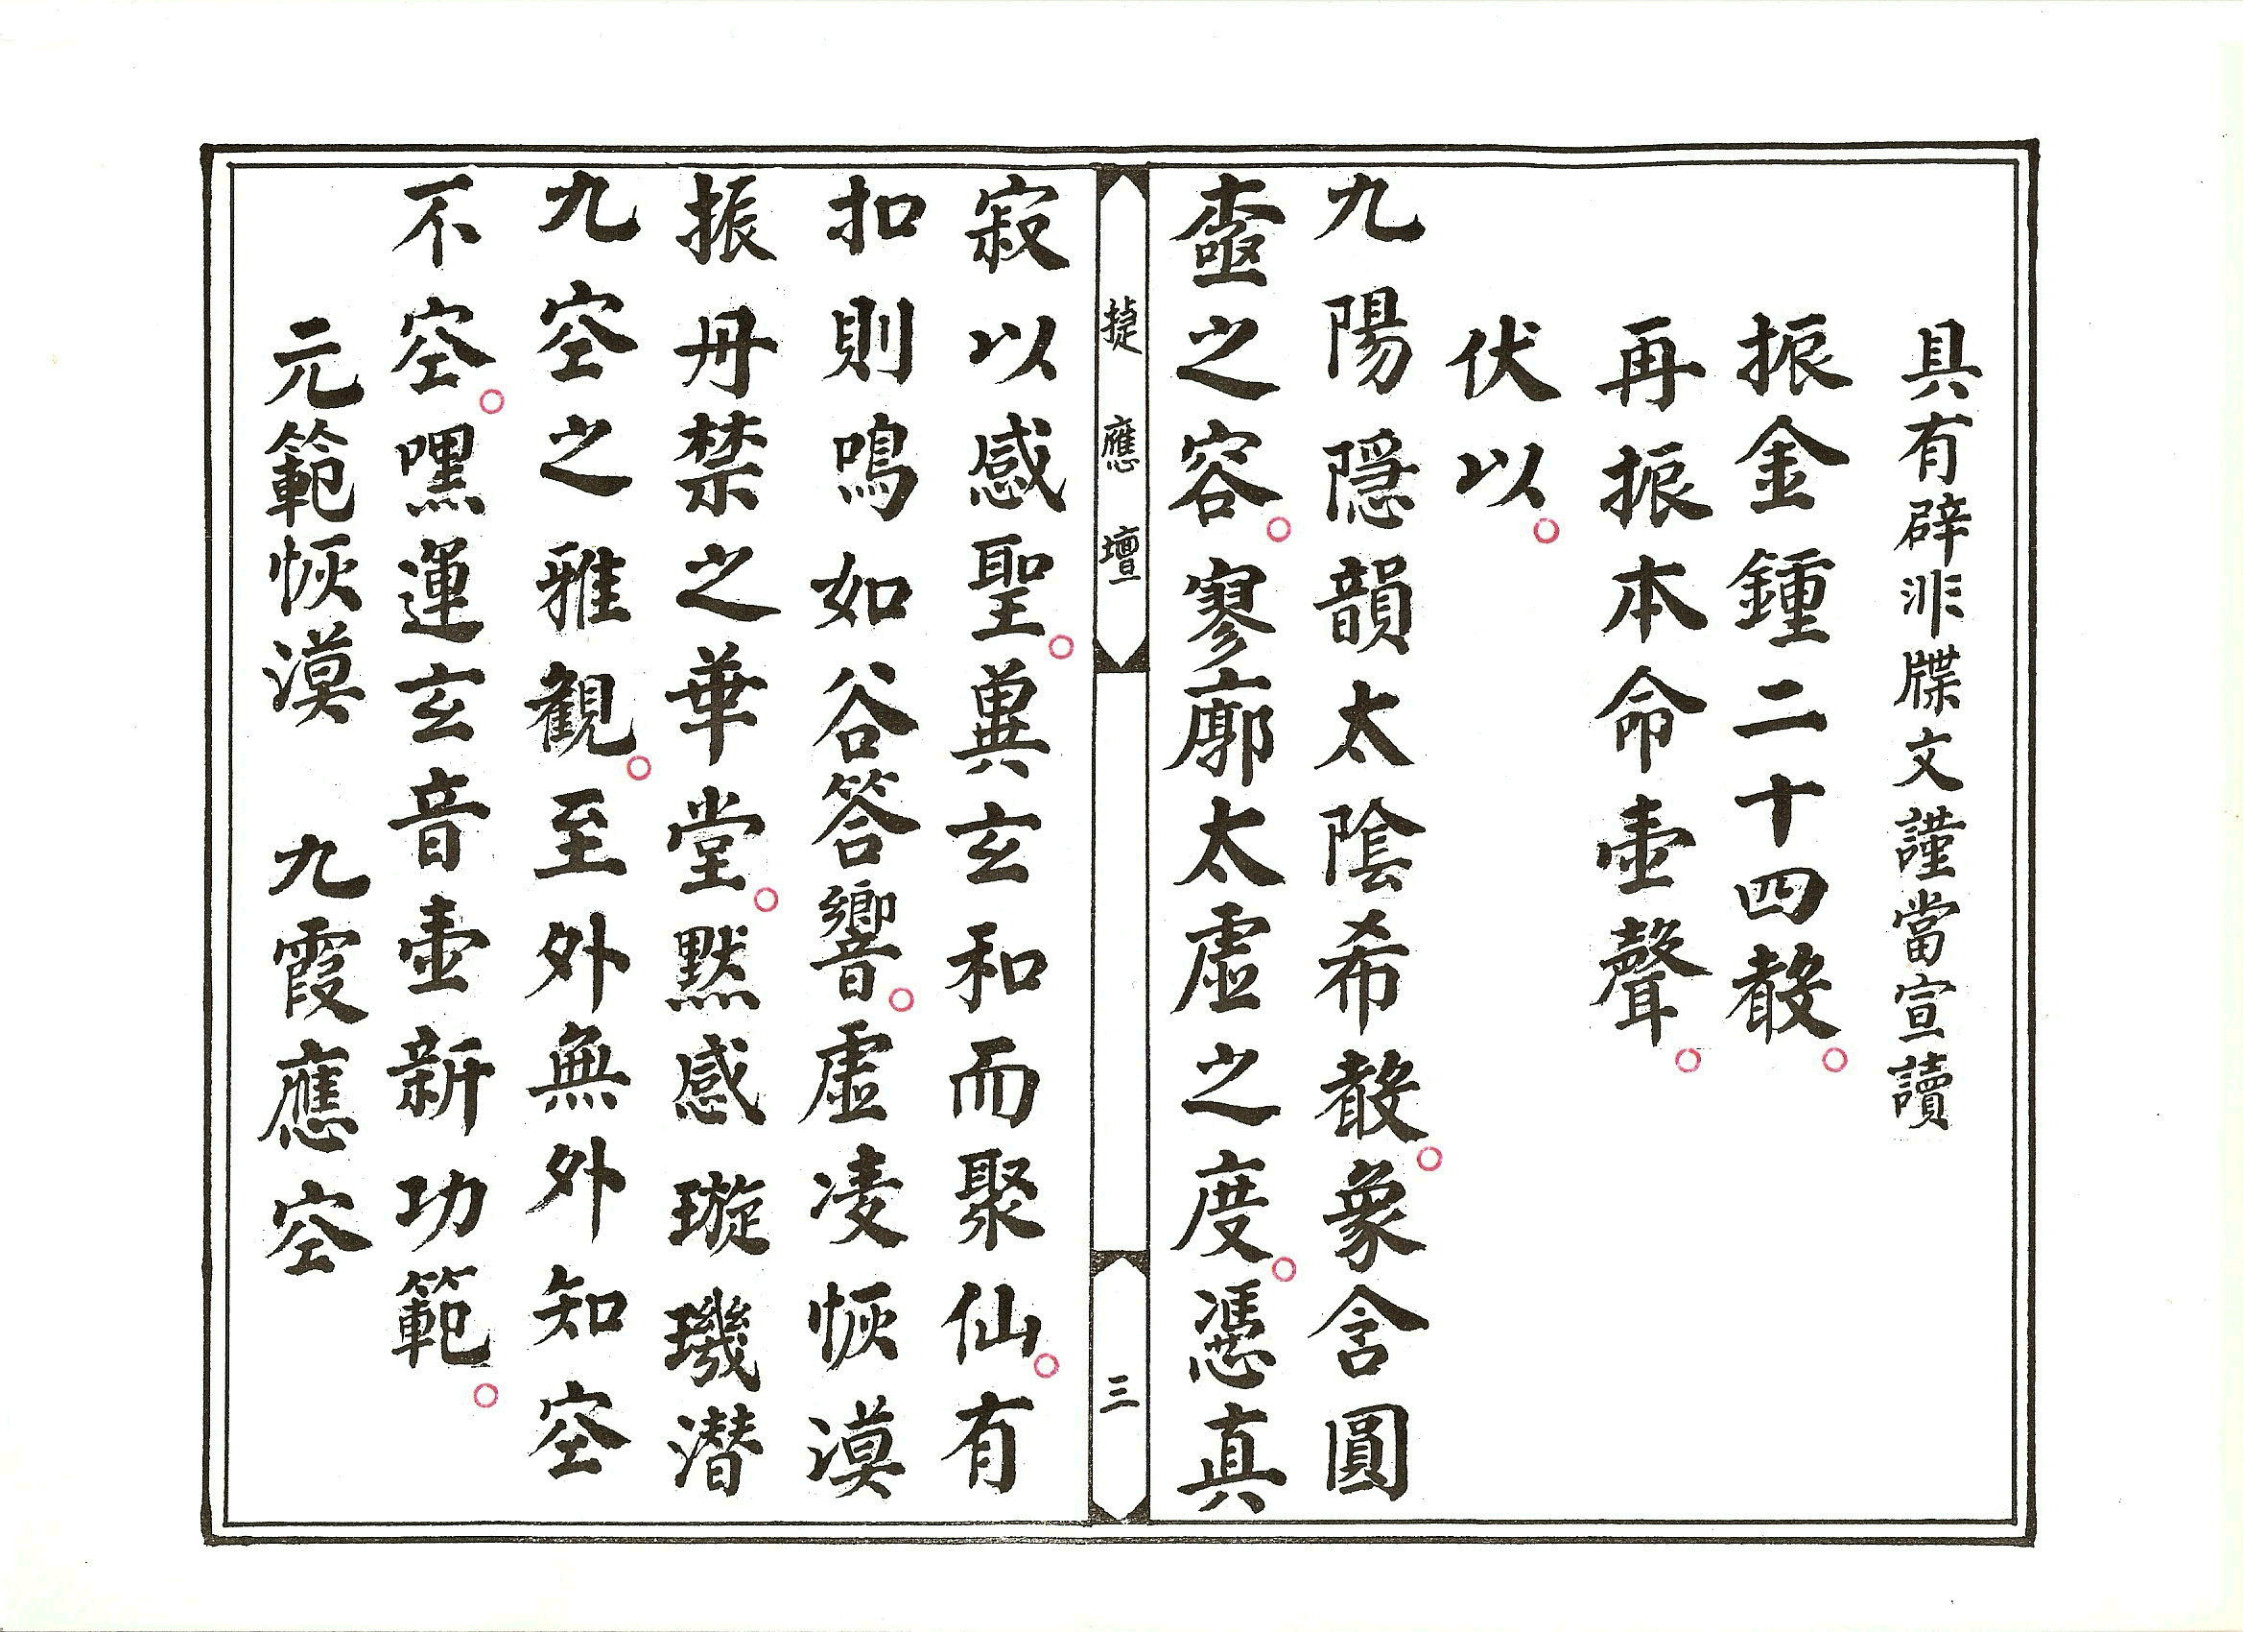 具有辟非牒文謹當宣讀
振金鍾二十四㪚。
再振本命壷聲。
伏以。
九陽隠韻太陰希㪚。象含圓
壷之容。寥廓太虛之度。憑真
捷應壇 三
寂以感聖。兾玄和而聚仙。有
扣則鳴如谷答響。虛凌恢漠
振丹禁之華堂。黙感璇璣潛
九空之雅観。至外無外知空
不空。嘿運玄音壷新功範。
元範恢漠 九霞應空